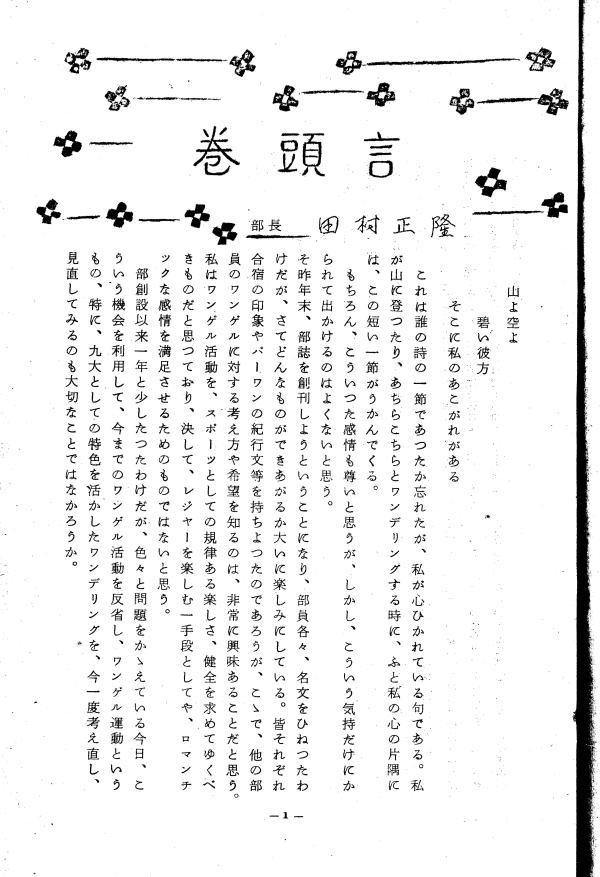 巻頭言
部長 田村正隆
山よ空よ
碧い彼方
そこに私のあこがれがある
これは誰の詩の一節であつたか忘れたが、私が心ひかれている句である。私
が山に登つたり、あちらこちらとワンデリングする時に、ふと私の心の片隅に
は、この短い一節がうかんでくる。
もちろん、こういつた感情も尊いと思うが、しかし、こういう気持だけにか
られて出かけるのはよくないと思う。
そ昨年末、部誌を創刊しようということになり、部員各々、名文をひねつたわ
けだが、さてどんなものができあがるか大いに楽しみにしている。皆それぞれ
合宿の印象やパーワンの紀行文等を持ちよつたのであろうが、こゝで、他の部
員のワンゲルに対する考え方や希望を知るのは、非常に興味あることだと思う。
私はワンゲル活動を、スポーツとしての規律ある楽しさ、健全を求めてゆくべ
きものだと思つており、決して、レジャーを楽しむ一手段としてや、ロマンチ
ックな感情を満足させるためのものではないと思う。
部創設以来一年と少したつたわけだが、色々と問題をかゝえている今日、こ
ういう機会を利用して、今までのワンゲル活動を反省し、ワンゲル運動という
もの、特に、九大としての特色を活かしたワンデリングを、今一度考え直し、
見直してみるのも大切なことではなかろうか。
— 1 —